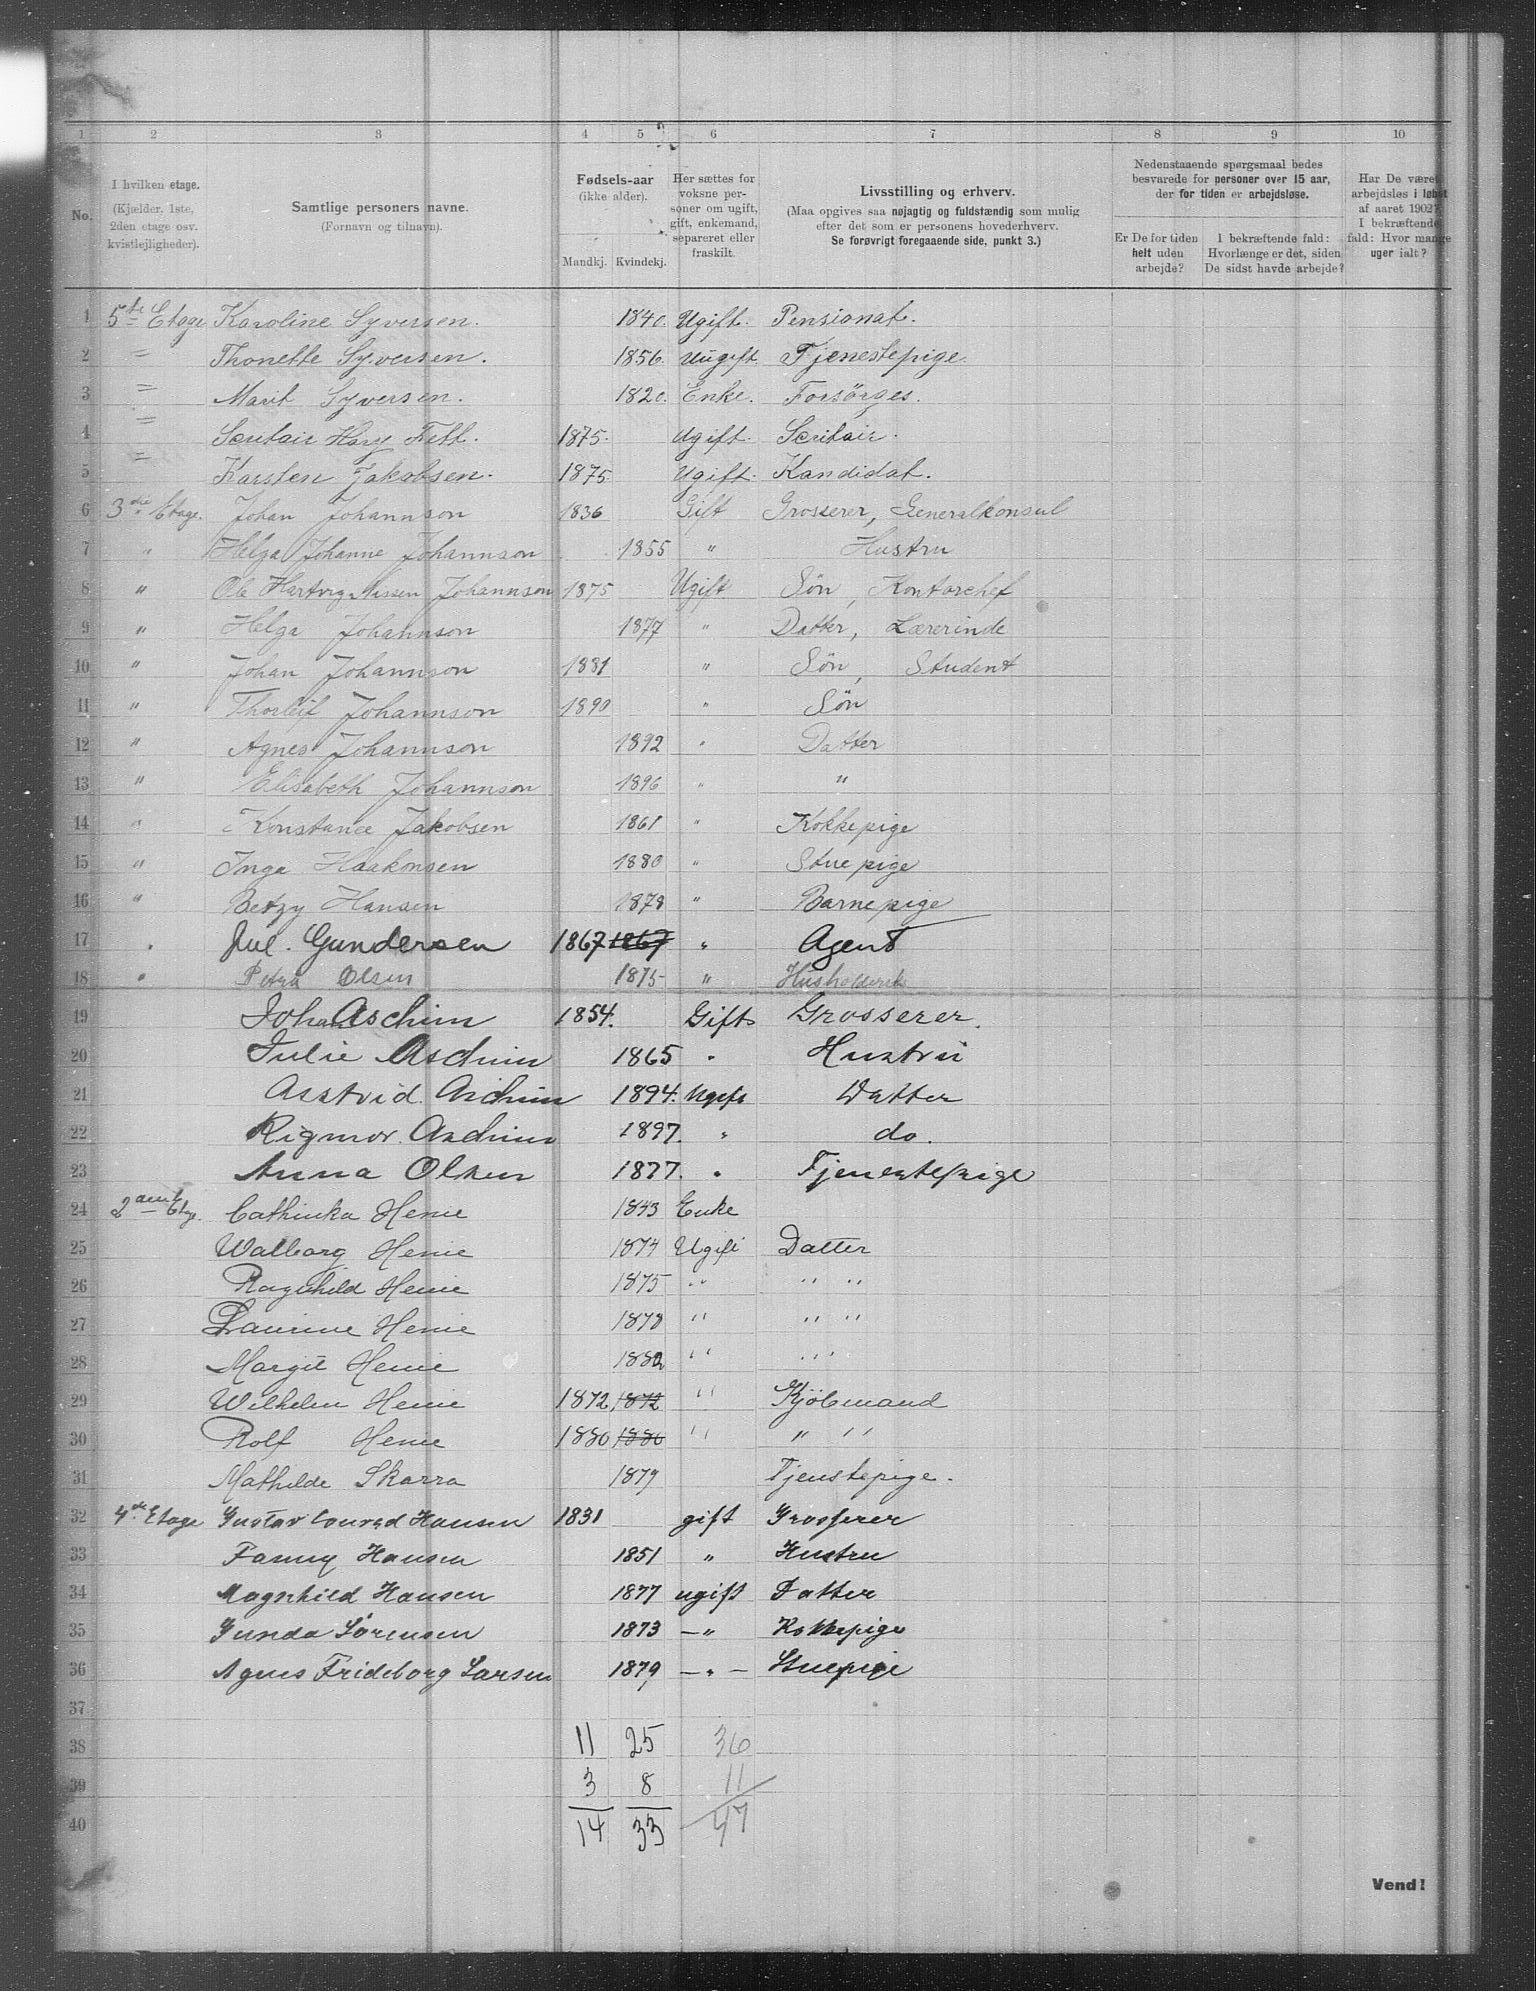 1 2 3 4 5 6 7 8 9 10
No.
I hvilken etage.
(Kjælder, 1ste, 2den etage osv. kvistlejligheder).
Samtlige personers navne.
(Fornavn og tilnavn).
Fødsels-aar
(ikke alder).
Mandkj. Kvindekj.
Her sættes for voksne personer om ugift, gift, enkemand, separeret eller fraskilt.
Livsstilling og erhverv.
(Maa opgives saa nøjagtig og fuldstændig som mulig efter det som er personens hovederhverv.
Se forøvrigt foregaaende side, punkt 3.)
Nedenstaaende spørgsmaal bedes besvarede for personer over 15 aar, der for tiden er arbejdsløse.
Er De for tiden helt uden arbejde?
I bekræftende fald: Hvorlænge er det, siden De sidst havde arbejde?
Har De været arbejdsløs i løbet af aaret 1902? I bekræftende fald: Hvor mange uger ialt?
1 5te Etage Karoline Syversen. 1840. Ugift. Pensionat.
2 = Thonette Syversen. 1856. Uugift Tjenestepige
3 = Marit Syversen. 1820. Enke. Forsörges.
4 = Hary Fett. 1875. Ugift.
5 = Karsten Jakobsen. 1875. Ugift. Kandidat.
6 3die Etage. Johan Johannson 1836 Gift Grosserer, Generalkonsul
7 " Helga Johanne Johannson 1855 " Hustru
8 " Ole Hartvig Nissen Johannson 1875 Ugift Søn, Kontorchef
9 " Helga Johannson 1877 " Datter, Lærerinde
10 " Johan Johannson 1881 " Søn, Student
11 " Thorleif Johannson 1890 " Søn
12 " Agnes Johannson 1892 " Datter
13 " Elisabeth Johannson 1896 " "
14 " Konstance Jakobsen 1861 " Kokkepige
15 " Inga Haakonsen 1880 " Stuepige
16 " Betzy Hansen 1878 " Barnepige
17 " Jul. Gundersen 1867 1867 " Agent
18 " Petra Olsen 1875 "
19 Johan Aschim 1854. Gift Grosserer.
20 Julie Aschim 1865 " Hustru
21 Asstrid. Aschim 1894. Ugift Datter
22 Rigmor. Aschim 1897. " do.
23 Anna Olsen 1877. " Tjenestepige
24 2den Etage. Cathinka Henie 1843 Enke
25 Walborg Henie 1874 Ugift Datter
26 Ragnhild Henie 1875 " " "
27 Laurine Henie 1878 " " "
28 Margit Henie 1882 " " "
29 Wilhelm Henie 1872 1872 " Kjöbmand
30 Rolf Henie 1880 1880 " " "
31 Mathilde Skarra 1879 Tjenstepige.
32 4de Etage Gustav Conrad Hansen 1831 gift Grosserer
33 Fanny Hansen 1851 " Hustru
34 Magnhild Hansen 1877 ugift Datter
35 Gunda Sörensen 1873 — " Kokkepige
36 Agnes Frideborg Larsen 1879 — " — Stuepige
37
38 11 25 36
39 3 8 11
40 14 33 47
Vend!